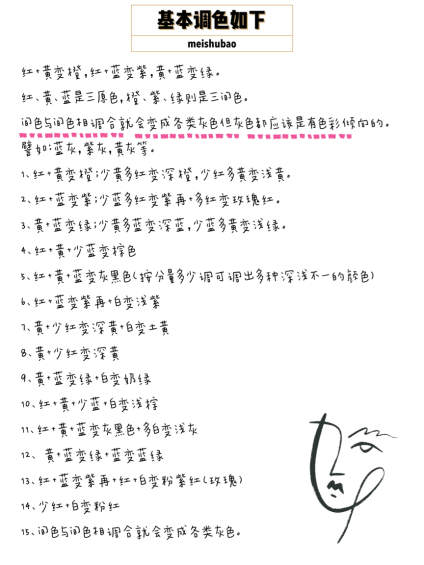 基本调色如下
meishubao
红+黄变橙,红+蓝变紫,黄+蓝变绿。
红、黄、蓝是三原色,橙、紫、绿则是三间色。
间色与间色相调合就会变成各类灰色但灰色都应该是有色彩倾向的。
譬如:蓝灰,紫灰,黄灰等。
1、红+黄变橙;少黄多红变深橙,少红多黄变浅黄。
2、红+蓝变紫;少蓝多红变紫再+多红变玫瑰红。
3、黄+蓝变绿;少黄多蓝变深蓝,少蓝多黄变浅绿。
4、红+黄+少蓝变棕色
5、红+黄+蓝变灰黑色(按分量多少调可调出多种深浅不一的颜色)
6、红+蓝变紫再+白变浅紫
7、黄+少红变深黄+白变土黄
8、黄+少红变深黄
9、黄+蓝变绿+白变奶绿
10、红+黄+少蓝+白变浅棕
11、红+黄+蓝变灰黑色+多白变浅灰
12、黄+蓝变绿+蓝变蓝绿
13、红+蓝变紫再+红+白变粉紫红(玫瑰)
14、少红+白变粉红
15、间色与间色相调合就会变成各类灰色。